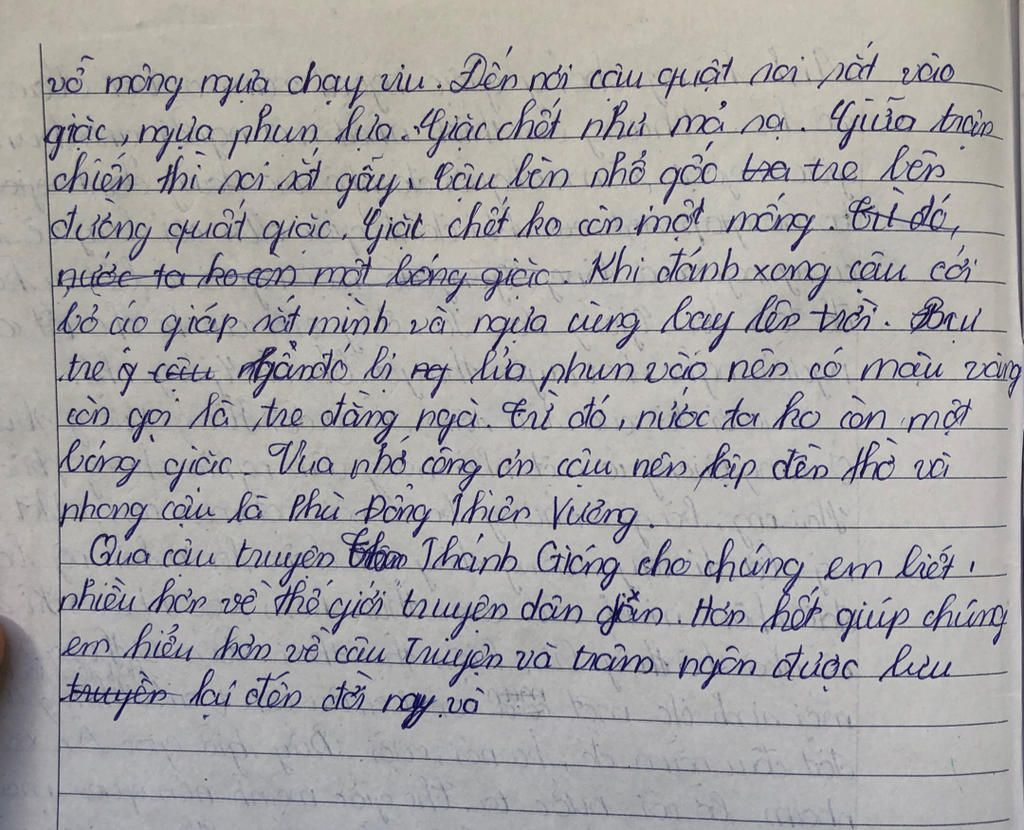 vỗ mông ngựa chạy viu. Đến nơi cậu quật roi sắt vào
giặc, ngựa phun lửa. Giặc chết như mả rạ. Giữa trận
chiến thì roi sắt gãy, cậu bèn nhổ gốc tre tre bên
đường quất giặc. Giặc chết ko còn một mống. Từ đó,
nước ta ko còn một bóng giặc. Khi đánh xong cậu cởi
bỏ áo giáp sắt mình và ngựa cùng bay lên trời. Bụi
tre ở cậu gần đó bị ng lửa phun vào nên có màu vàng
còn gọi là tre đằng ngà. Từ đó, nước ta ko còn một
bóng giặc. Vua nhớ công ơn cậu nên lập đền thờ và
phong cậu là Phù Đổng Thiên Vương.
Qua câu truyện Thánh Gióng cho chúng em biết
nhiều hơn về thế giới truyện dân gian. Hơn hết giúp chúng
em hiểu hơn về câu truyện và trâm ngôn được lưu
truyền lại đến đời nay và